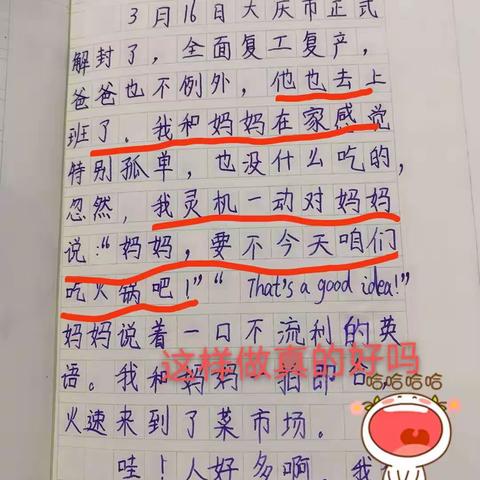 3月16日大庆市正式
解封了，全面复工复产，
爸爸也不例外，他也去上
班了。我和妈妈在家感觉
特别孤单，也没什么吃的，
忽然，我灵机一动对妈妈
说：“妈妈，要不今天咱们
吃火锅吧！”“That's a good idea!”
妈妈说着一口不流利的英
语。我和妈妈一拍即合
这样做真的好吗
哈哈哈哈
火速来到了菜市场。
哇！人好多啊，我